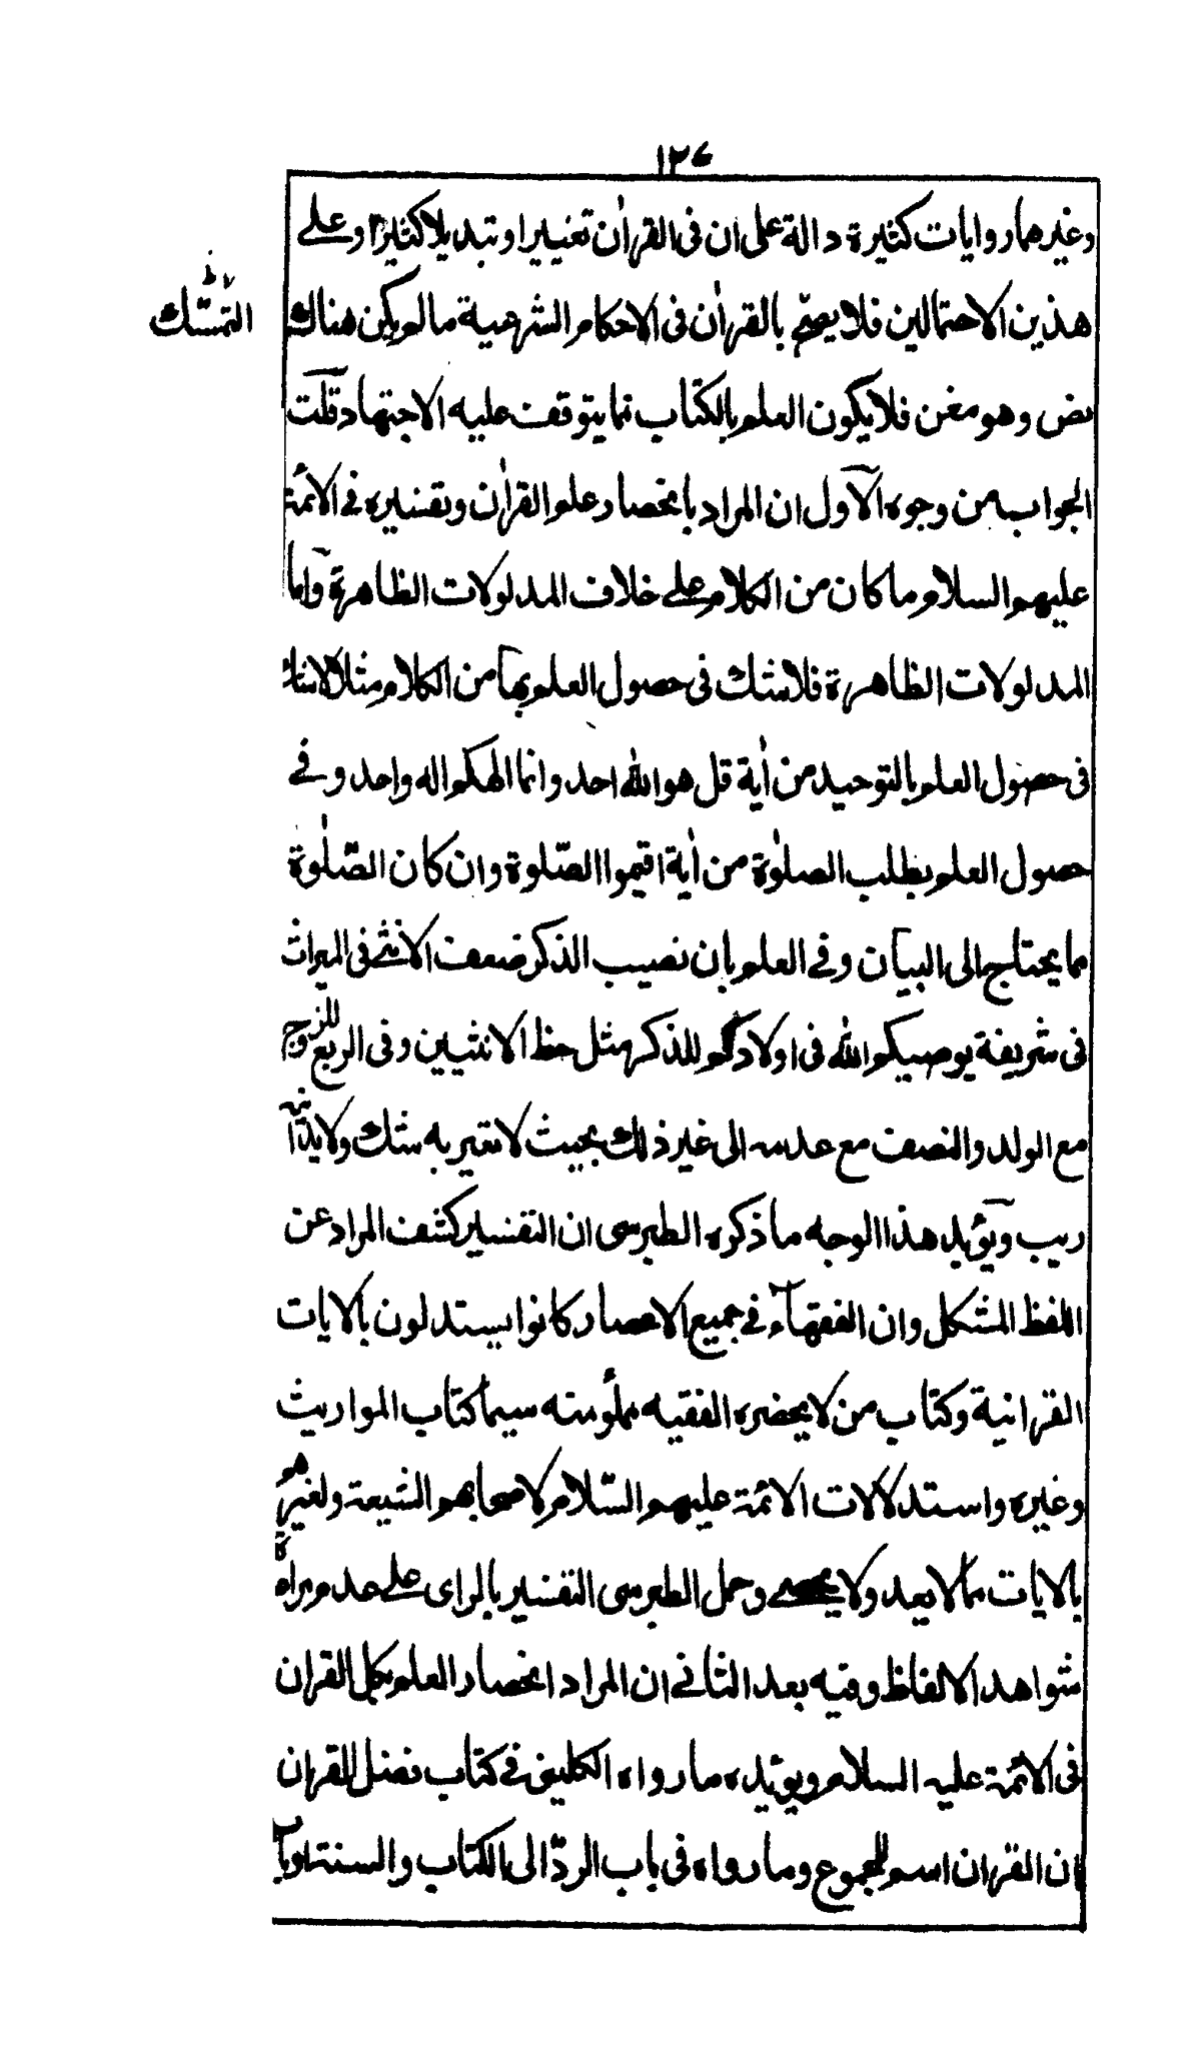 ١٢٦
وغيرهما روايات كثيرة دالة على ان فى القرأن تغييرا وتبديلا كثيرا وعلى
هذين الاحتمالين فلا يصح بالقرأن فى الاحكام الشرعية مالم يكن هناك
التمسّك
نص وهو مغن فلا يكون العلم بالكتاب مما يتوقف عليه الاجتهاد قلت
الجواب من وجوه الاول ان المراد بانحصار علم القرأن وتفسيره فى الائمة
عليهم السلام ما كان من الكلام على خلاف المدلولات الظاهرة واما
المدلولات الظاهرة فلا شك فى حصول العلم بها من الكلام مثلا لا شك
فى حصول العلم بالتوحيد من أية قل هو الله احد وانما الهكم اله واحد وفى
حصول العلم بطلب الصلوة من أية اقيموا الصّلوة وان كان الصّلوة
مما يحتاج الى البيان وفى العلم بان نصيب الذكر ضعف الانثى فى الميراث
فى شريفة يوصيكم الله فى اولادكم للذكر مثل حظ الانثيين وفى الربع للزوج
مع الولد والنصف مع عدمه الى غير ذلك بحيث لا يعتريه شك ولا يدانيه
ريب ويؤيد هذا الوجه ما ذكره الطبرسى ان التفسير كشف المراد عن
اللفظ المشكل وان الفقهاء فى جميع الاعصار كانوا يستدلون بالايات
القرانية وكتاب من لا يحضره الفقيه مملؤ منه سيما كتاب المواريث
وغيره واستدلالات الائمة عليهم السّلام لاصحابهم الشيعة ولغيرهم
بالايات مما لا يعد ولا يحصى وحمل الطبرسى التفسير بالراى على عدم مراعاة
شواهد الالفاظ وفيه بعد الثانى ان المراد انحصار العلم بكل القران
فى الائمة عليه السلام ويؤيده ما رواه الكلينى فى كتاب فضل القران
ان القران اسم للمجموع وما رواه فى باب الردّ الى الكتاب والسنة